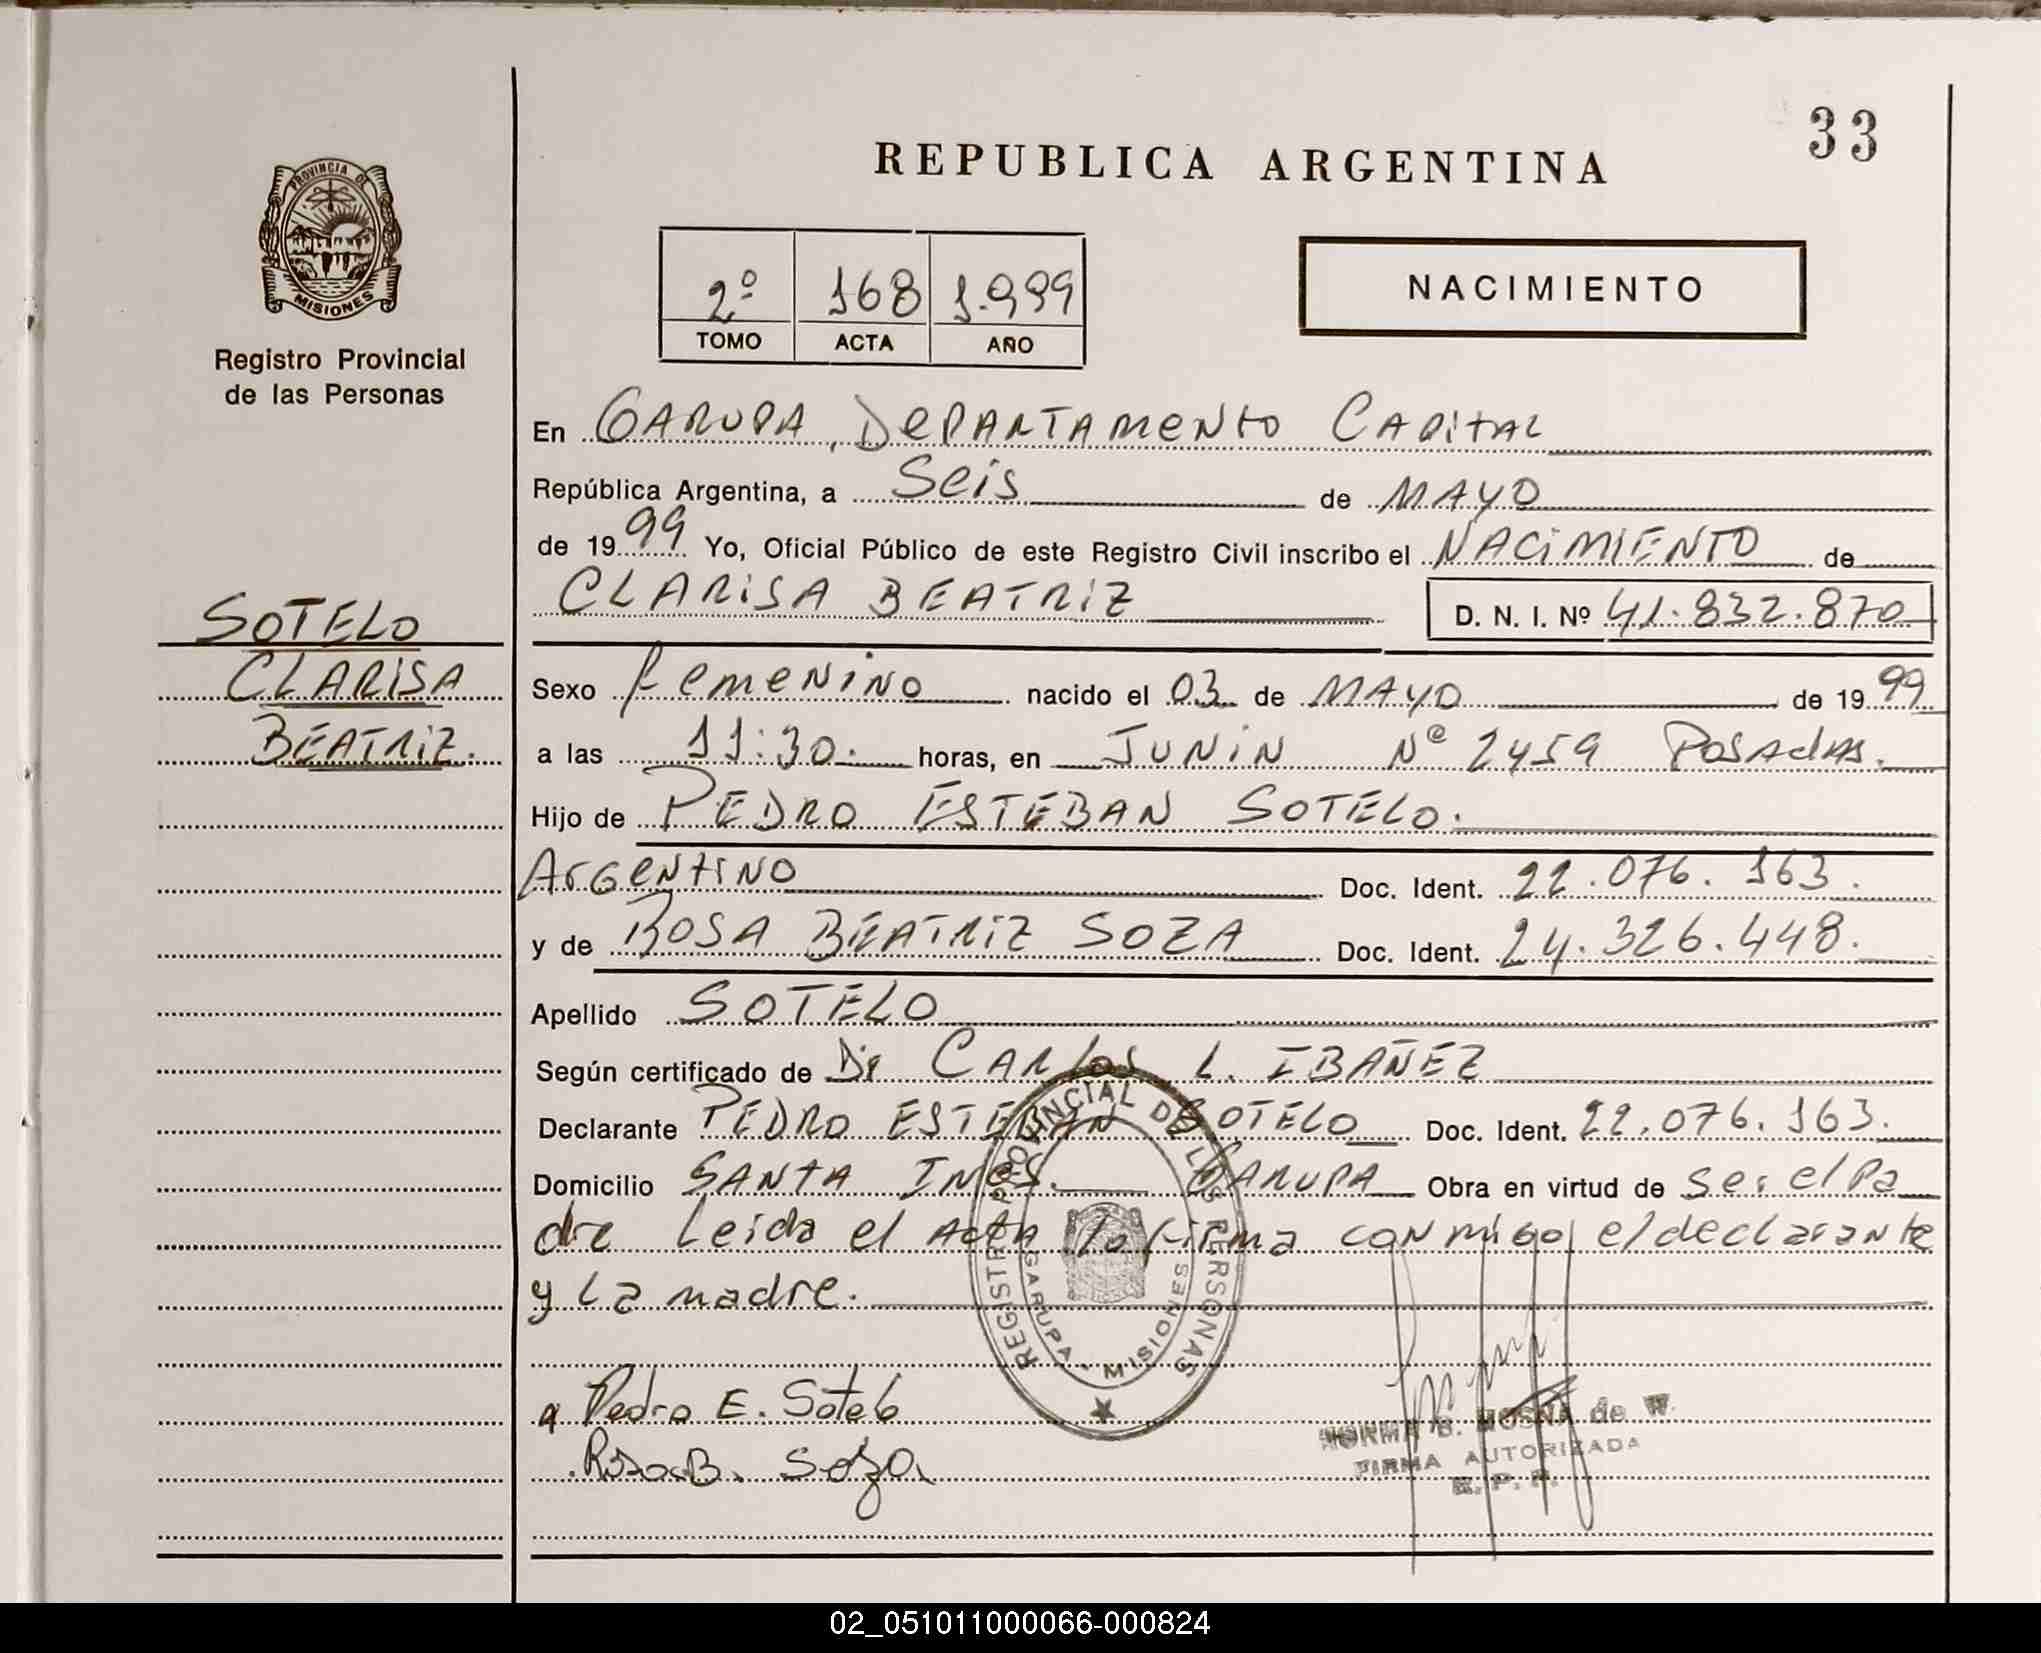 33
REPUBLICA ARGENTINA
PROVINCIA DE
MISIONES
Registro Provincial
de las Personas
2º 168 1.999
TOMO ACTA AÑO
NACIMIENTO
En GARUPA, DEPARTAMENTO CAPITAL
República Argentina, a Seis de MAYO
de 1999 Yo, Oficial Público de este Registro Civil inscribo el NACIMIENTO de
CLARISA BEATRIZ D. N. I. Nº 41.832.870
SOTELO
CLARISA
BEATRIZ.
Sexo femenino nacido el 03 de MAYO de 1999
a las 11:30. horas, en JUNIN Nº 2459 POSADAS.
Hijo de PEDRO ESTEBAN SOTELO.
Argentino Doc. Ident. 22.076.163.
y de ROSA BEATRIZ SOZA Doc. Ident. 24.326.448.
Apellido SOTELO
Según certificado de Dr CARLOS L. IBAÑEZ
Declarante PEDRO ESTEBAN SOTELO Doc. Ident. 22.076.163.
Domicilio SANTA INES. GARUPA Obra en virtud de ser el Pa
dre Leida el Acta la firma conmigo el declarante
y La madre.
REGISTRO PROVINCIAL DE LAS PERSONAS
GARUPA - MISIONES
Pedro E. Sotelo
Rosa B. Soza
NORMA B. MOSNA de W.
FIRMA AUTORIZADA
R. P. P.
02_051011000066-000824